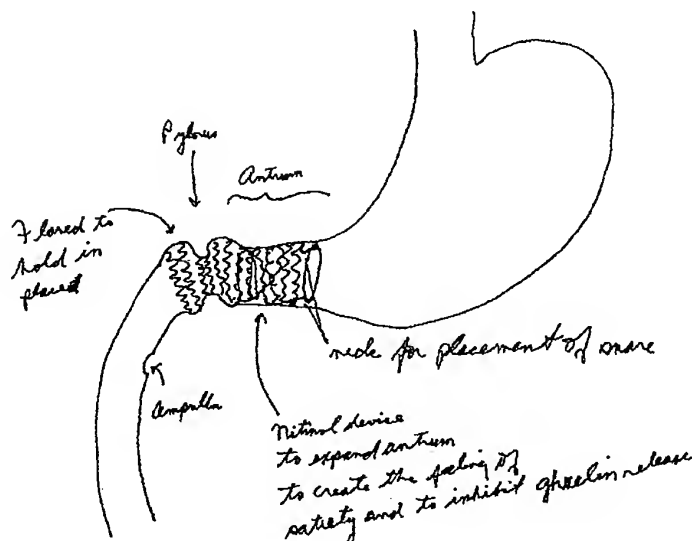 Pylorus
Antrum
Flared to
hold in
place
neck for placement of snare
ampulla
Nitinol device
to expand antrum
to create the feeling of
satiety and to inhibit ghrelin release